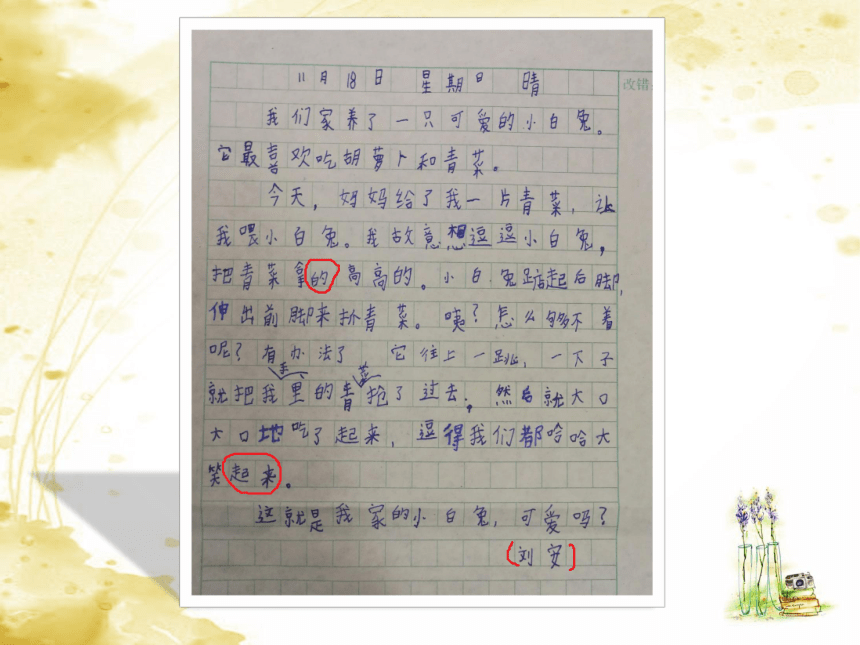 11月18日 星期日 晴
改错
我们家养了一只可爱的小白兔。
它最喜欢吃胡萝卜和青菜。
今天，妈妈给了我一片青菜，让
我喂小白兔。我故意想逗逗小白兔，
把青菜拿的高高的。小白兔踮起后脚，
伸出前脚来扑青菜。咦？怎么够不着
呢？有办法了 它往上一跳，一下子
就把我手里的青菜抢了过去。然后就大口
大口地吃了起来，逗得我们都哈哈大
笑起来。
这就是我家的小白兔，可爱吗？
(刘安)